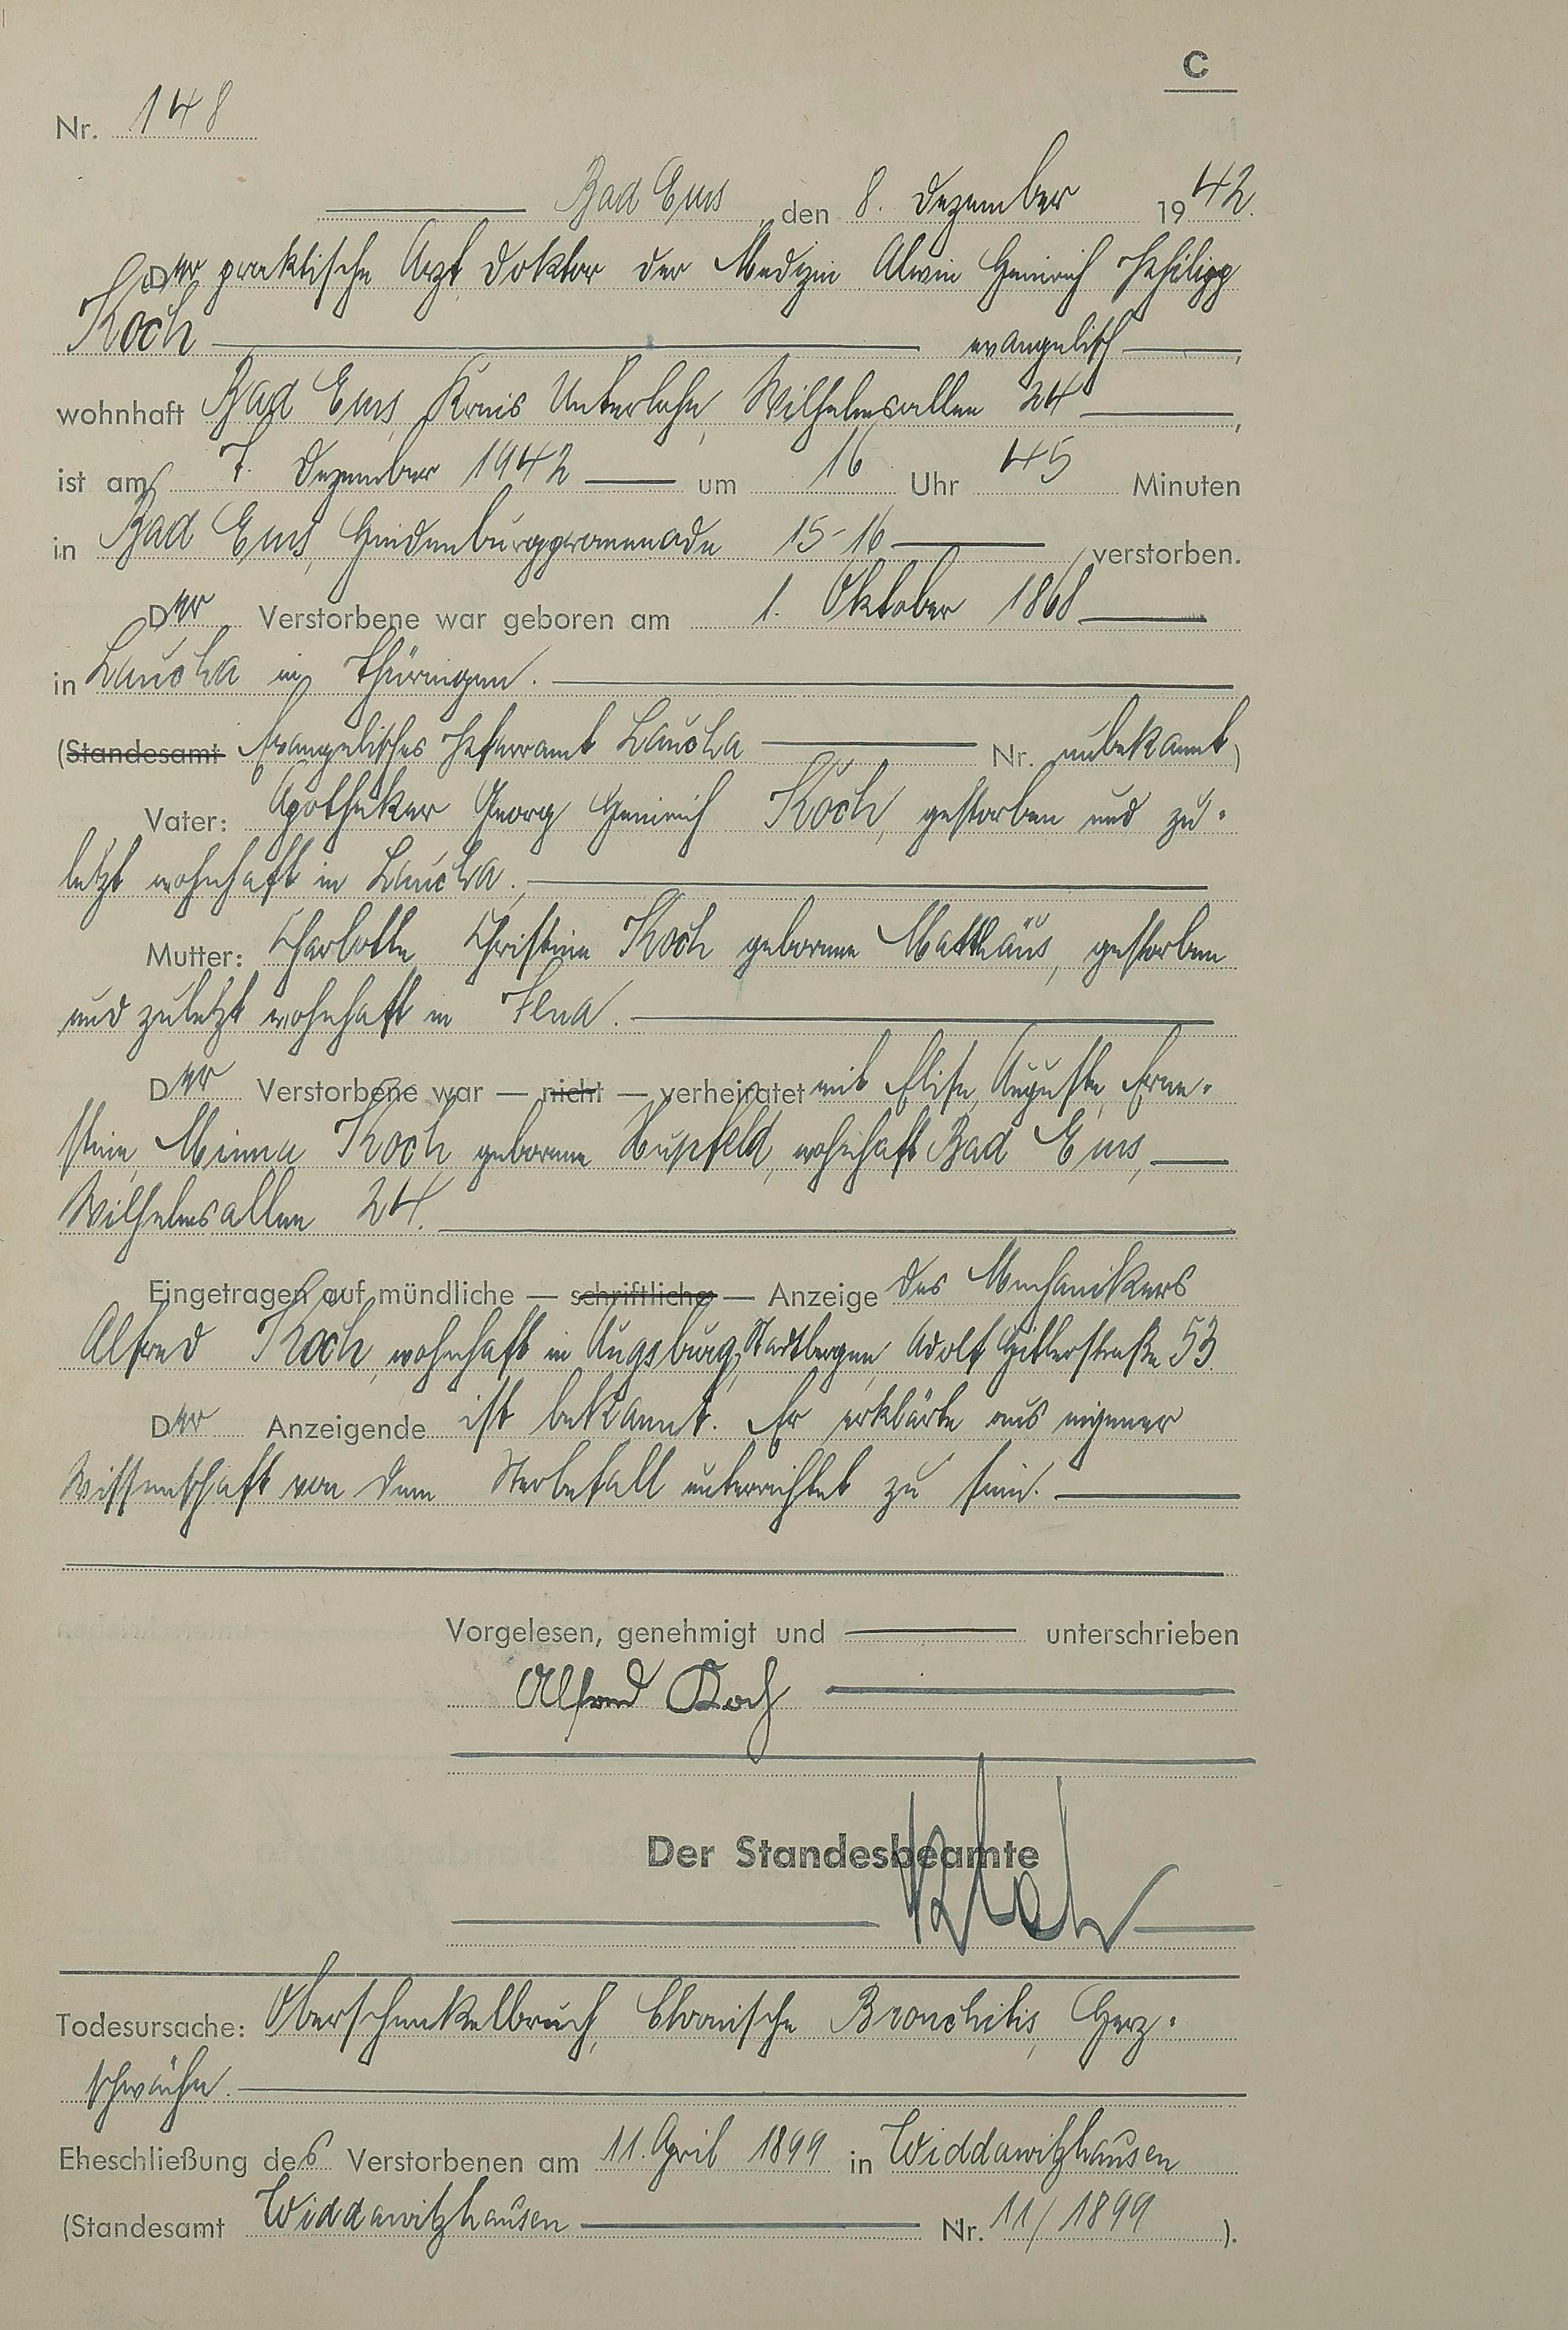 C
Nr. 148
Bad Ems, den 8. Dezember 1942.
Der praktische Arzt Doktor der Medizin Alwin Heinrich Philipp
Koch evangelisch,
wohnhaft Bad Ems, Kreis Unterlahn, Wilhelmsallee 24,
ist am 7. Dezember 1942 um 16 Uhr 45 Minuten
in Bad Ems, Hindenburgpromenade 15-16 verstorben.
Der Verstorbene war geboren am 1. Oktober 1868
in Lauscha in Thüringen.
(Standesamt Evangelisches Pfarramt Lauscha Nr. unbekannt)
Vater: Apotheker Georg Heinrich Koch, gestorben und zu-
letzt wohnhaft in Lauscha.
Mutter: Charlotte Christine Koch geborene Matthäus, gestorben
und zuletzt wohnhaft in Jena.
Der Verstorbene war — nicht — verheiratet mit Elise, Auguste, Erne-
stine, Minna Koch geborene Hupfeld, wohnhaft Bad Ems,
Wilhelmsallee 24.
Eingetragen auf mündliche — schriftliche — Anzeige des Mechanikers
Alfred Koch, wohnhaft in Augsburg, Stadtbergen, Adolf Hitlerstraße 53.
Der Anzeigende ist bekannt. Er erklärte aus eigener
Wissenschaft von dem Sterbefall unterrichtet zu sein.
Vorgelesen, genehmigt und unterschrieben
Alfred Koch
Der Standesbeamte
Todesursache: Oberschenkelbruch, Chronische Bronchitis, Herz-
schwäche.
Eheschließung des Verstorbenen am 11. April 1899 in Widdawitzhausen
(Standesamt Widdawitzhausen Nr. 11/1899).